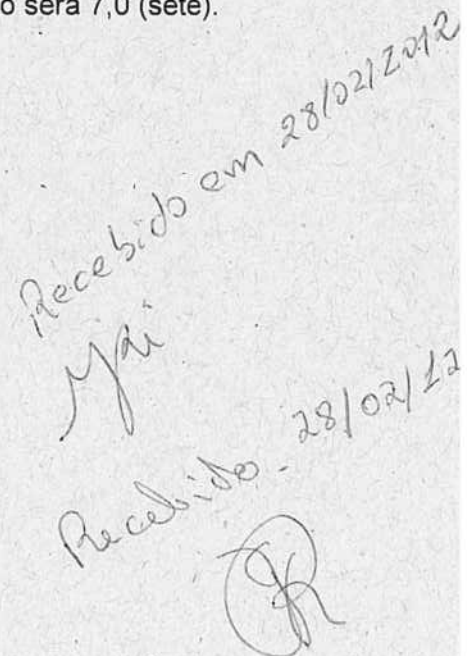 o será 7,0 (sete).
Recebido em 28/02/2012
Recebido - 28/02/12